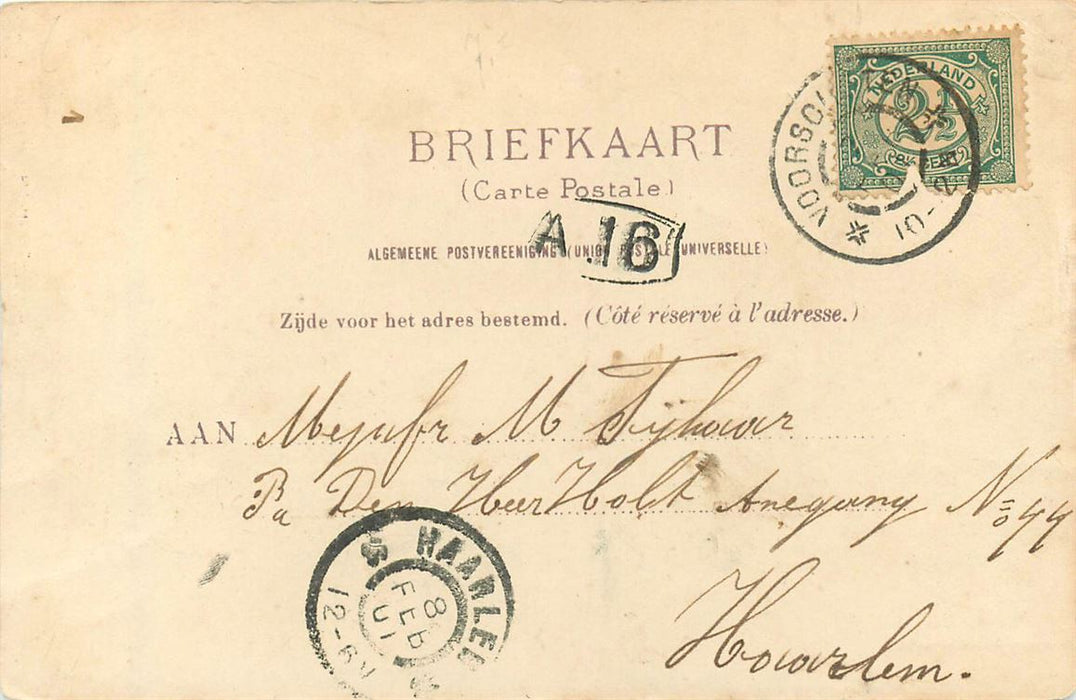 NEDERLAND
2½
2½ CENT
VOORSCH
10-2
BRIEFKAART
(Carte Postale)
A 16
ALGEMEENE POSTVEREENIGING (UNION POSTALE UNIVERSELLE)
Zijde voor het adres bestemd. (Côté réservé à l'adresse.)
AAN Mejufr M
Pa Den Heer Holt Anegang No 44
Haarlem.
HAARLEM
8
FEB
01
12-6N